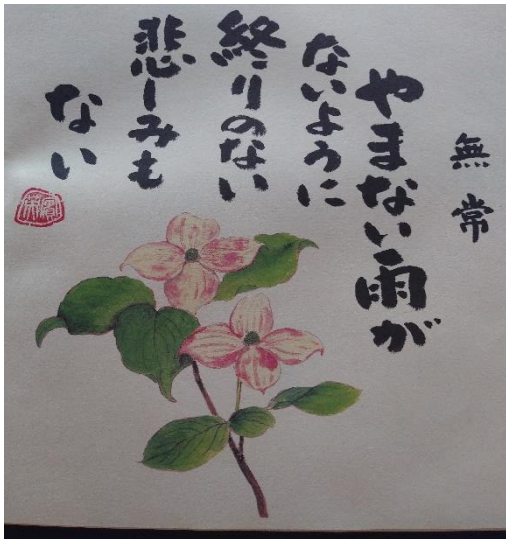 無常
やまない雨が
ないように
終りのない
悲しみも
ない